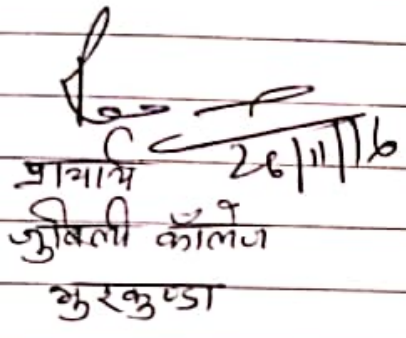 26/11/16
प्राचार्य
जुबिली कॉलेज
भुरकुण्डा